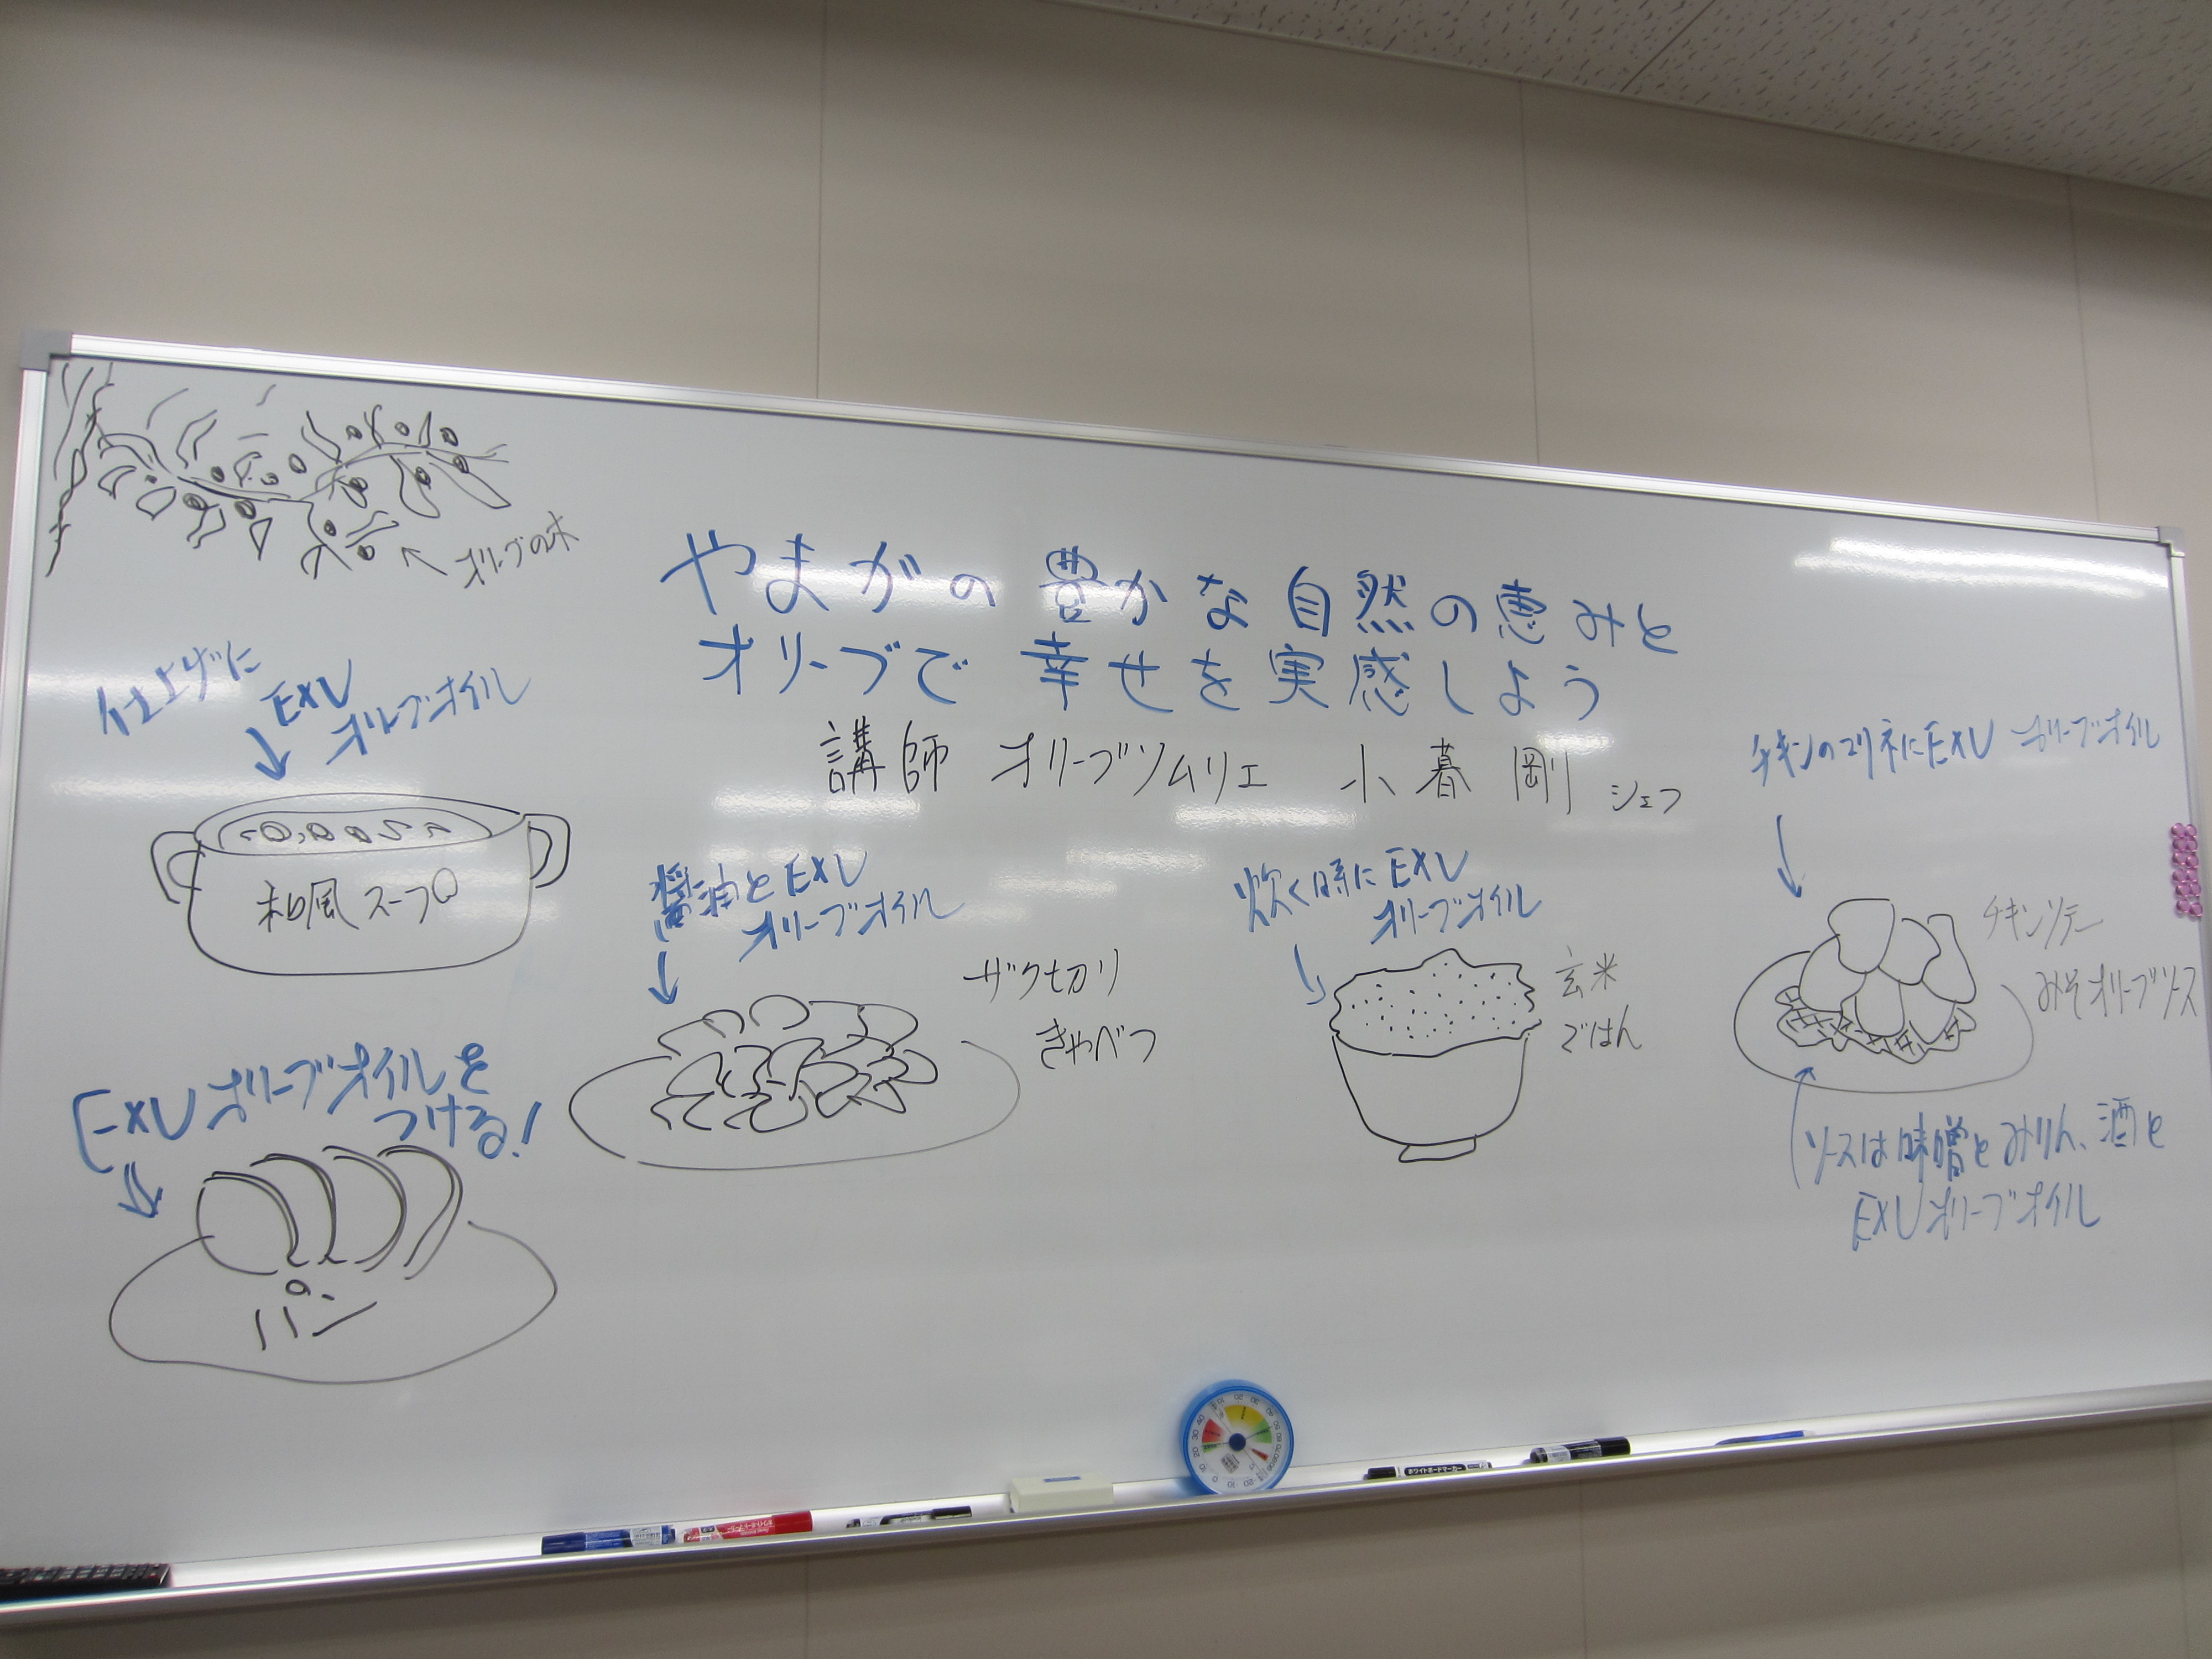 オリーブの木
やまがの豊かな自然の恵みと
オリーブで幸せを実感しよう
講師 オリーブソムリエ 小暮 剛 シェフ
仕上げに
EXV
オリーブオイル
和風スープ
EXVオリーブオイルを
つける!
パン
醤油とEXV
オリーブオイル
ザク切り
きゃべつ
炊く時にEXV
オリーブオイル
玄米
ごはん
チキンのマリネにEXV オリーブオイル
チキンソテー
みそオリーブソース
ソースは味噌とみりん、酒と
EXVオリーブオイル
ホワイトボードマーカー